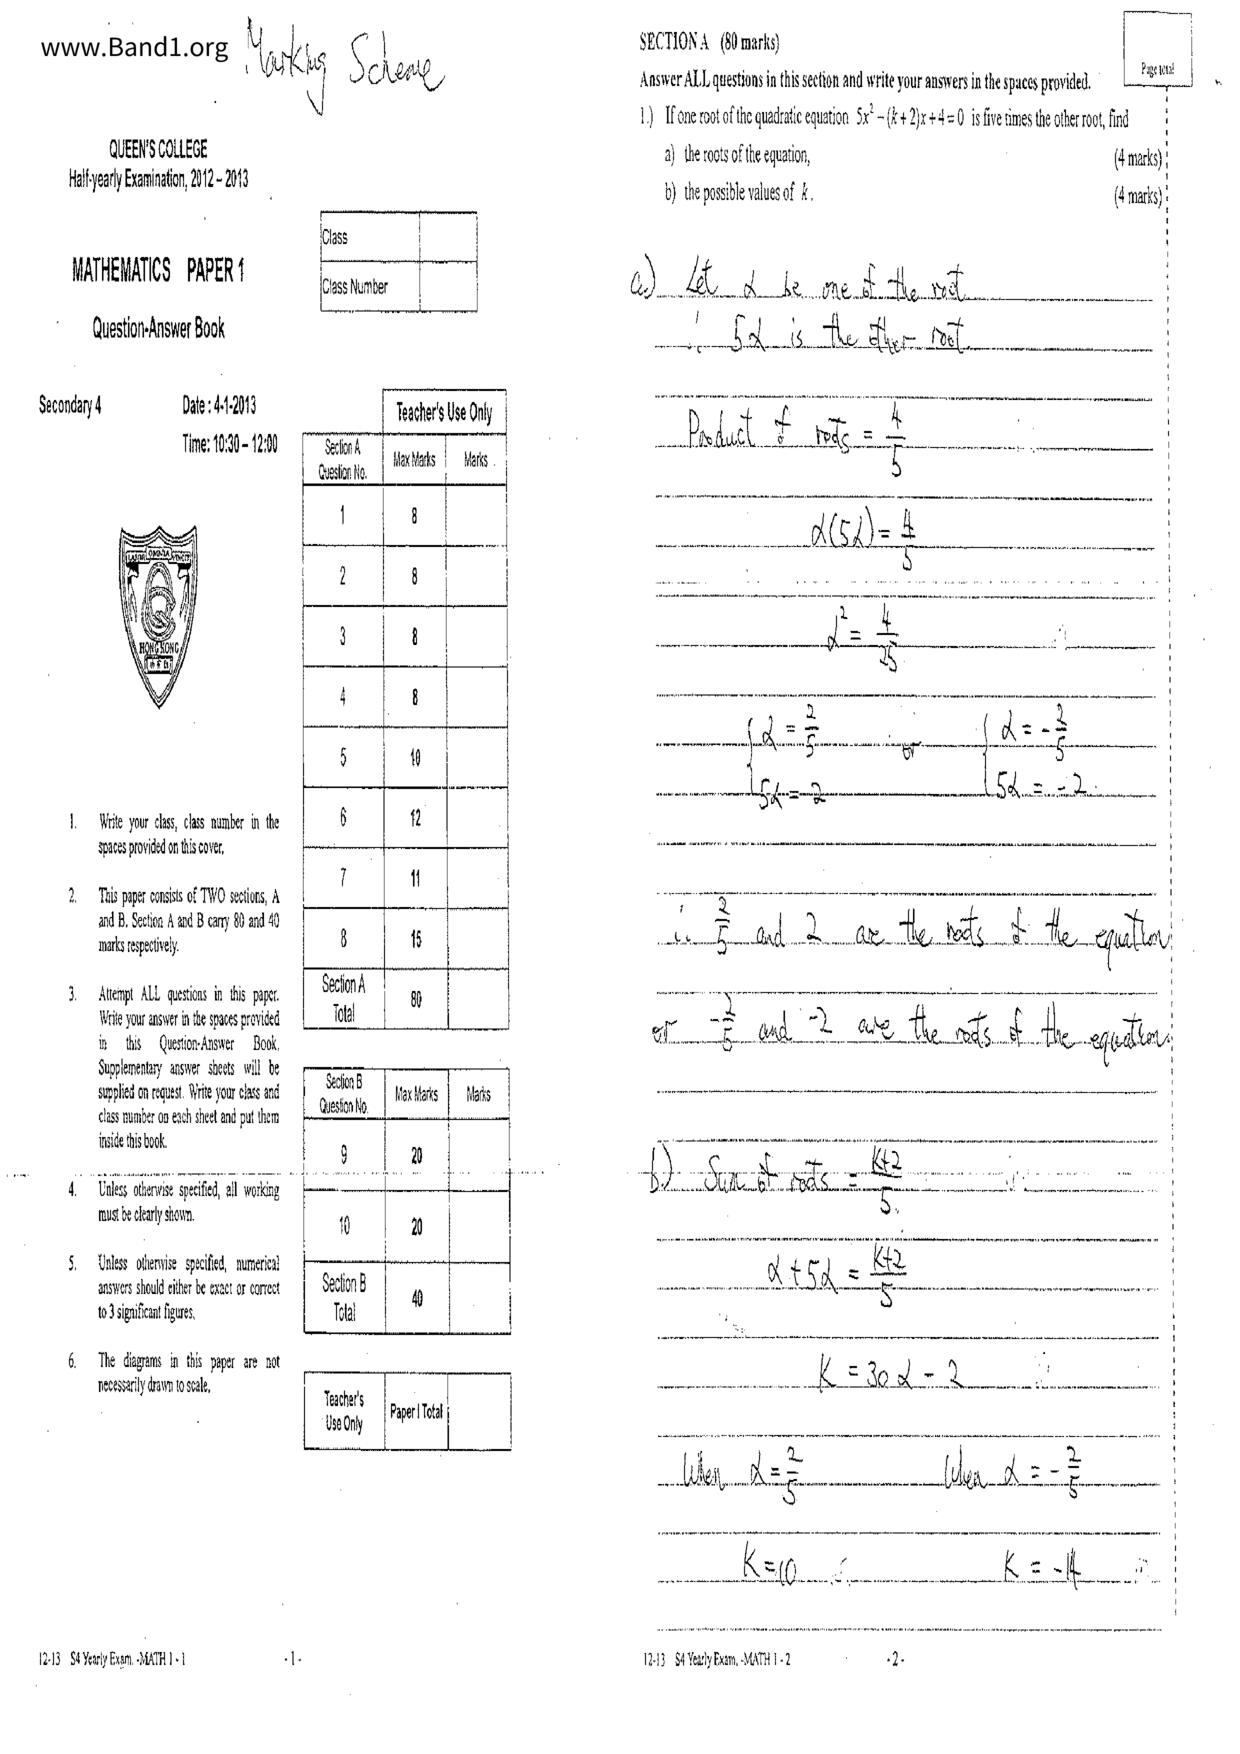 www.Band1.org
Marking Scheme
QUEEN'S COLLEGE
Half-yearly Examination, 2012 – 2013
Class
Class Number
MATHEMATICS PAPER 1
Question-Answer Book
Secondary 4
Date : 4-1-2013
Time: 10:30 – 12:00
Teacher's Use Only
Section A Question No.
Max Marks
Marks
1 8
2 8
3 8
4 8
5 10
6 12
7 11
8 15
Section A Total 80
HONG KONG
Section B Question No.
Max Marks
Marks
9 20
10 20
Section B Total 40
Teacher's Use Only
Paper I Total
1. Write your class, class number in the
spaces provided on this cover.
2. This paper consists of TWO sections, A
and B. Section A and B carry 80 and 40
marks respectively.
3. Attempt ALL questions in this paper.
Write your answer in the spaces provided
in this Question-Answer Book.
Supplementary answer sheets will be
supplied on request. Write your class and
class number on each sheet and put them
inside this book.
4. Unless otherwise specified, all working
must be clearly shown.
5. Unless otherwise specified, numerical
answers should either be exact or correct
to 3 significant figures.
6. The diagrams in this paper are not
necessarily drawn to scale.
12-13 S4 Yearly Exam. -MATH 1 - 1
- 1 -
SECTION A (80 marks)
Page total
Answer ALL questions in this section and write your answers in the spaces provided.
1.) If one root of the quadratic equation 5x² − (k + 2)x + 4 = 0 is five times the other root, find
a) the roots of the equation, (4 marks)
b) the possible values of k. (4 marks)
a.) Let α be one of the root
∴ 5α is the other root.
Product of roots = 4/5
α(5α) = 4/5
α² = 4/25
{α = 2/5 or {α = -2/5
5α = 2 5α = -2
∴ 2/5 and 2 are the roots of the equation
or -2/5 and -2 are the roots of the equation.
b.) Sum of roots = k+2/5
α + 5α = k+2/5
K = 30α - 2
When α = 2/5 When α = -2/5
K = 10 K = -14
12-13 S4 Yearly Exam. -MATH 1 - 2
- 2 -